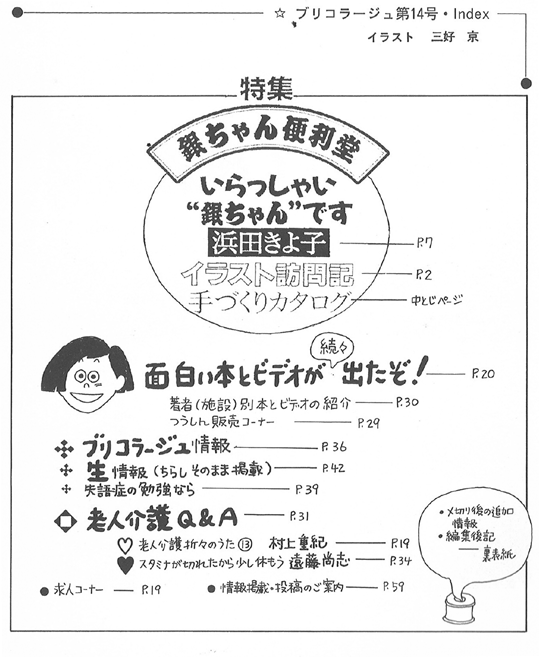 ☆ ブリコラージュ第14号・Index
イラスト 三好 京
特集
銀ちゃん便利堂
いらっしゃい
“銀ちゃん”です
浜田きよ子 P.7
イラスト訪問記 P.2
手づくりカタログ 中とじページ
続々
面白い本とビデオが出たぞ! P.20
著者(施設)別 本とビデオの紹介 P.30
つうしん販売コーナー P.29
ブリコラージュ情報 P.36
生情報(ちらしそのまま掲載) P.42
失語症の勉強なら P.39
老人介護Q&A P.31
♡ 老人介護折々のうた⑬ 村上重紀 P.19
♥ スタミナが切れたから少し休もう 遠藤尚志 P.34
● 求人コーナー P.19
● 情報掲載・投稿のご案内 P.59
・〆切り後の追加
情報
・編集後記
裏表紙